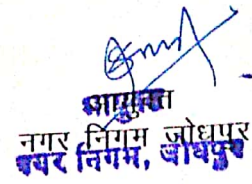 आयुक्त
नगर निगम जोधपुर
नगर निगम, जोधपुर